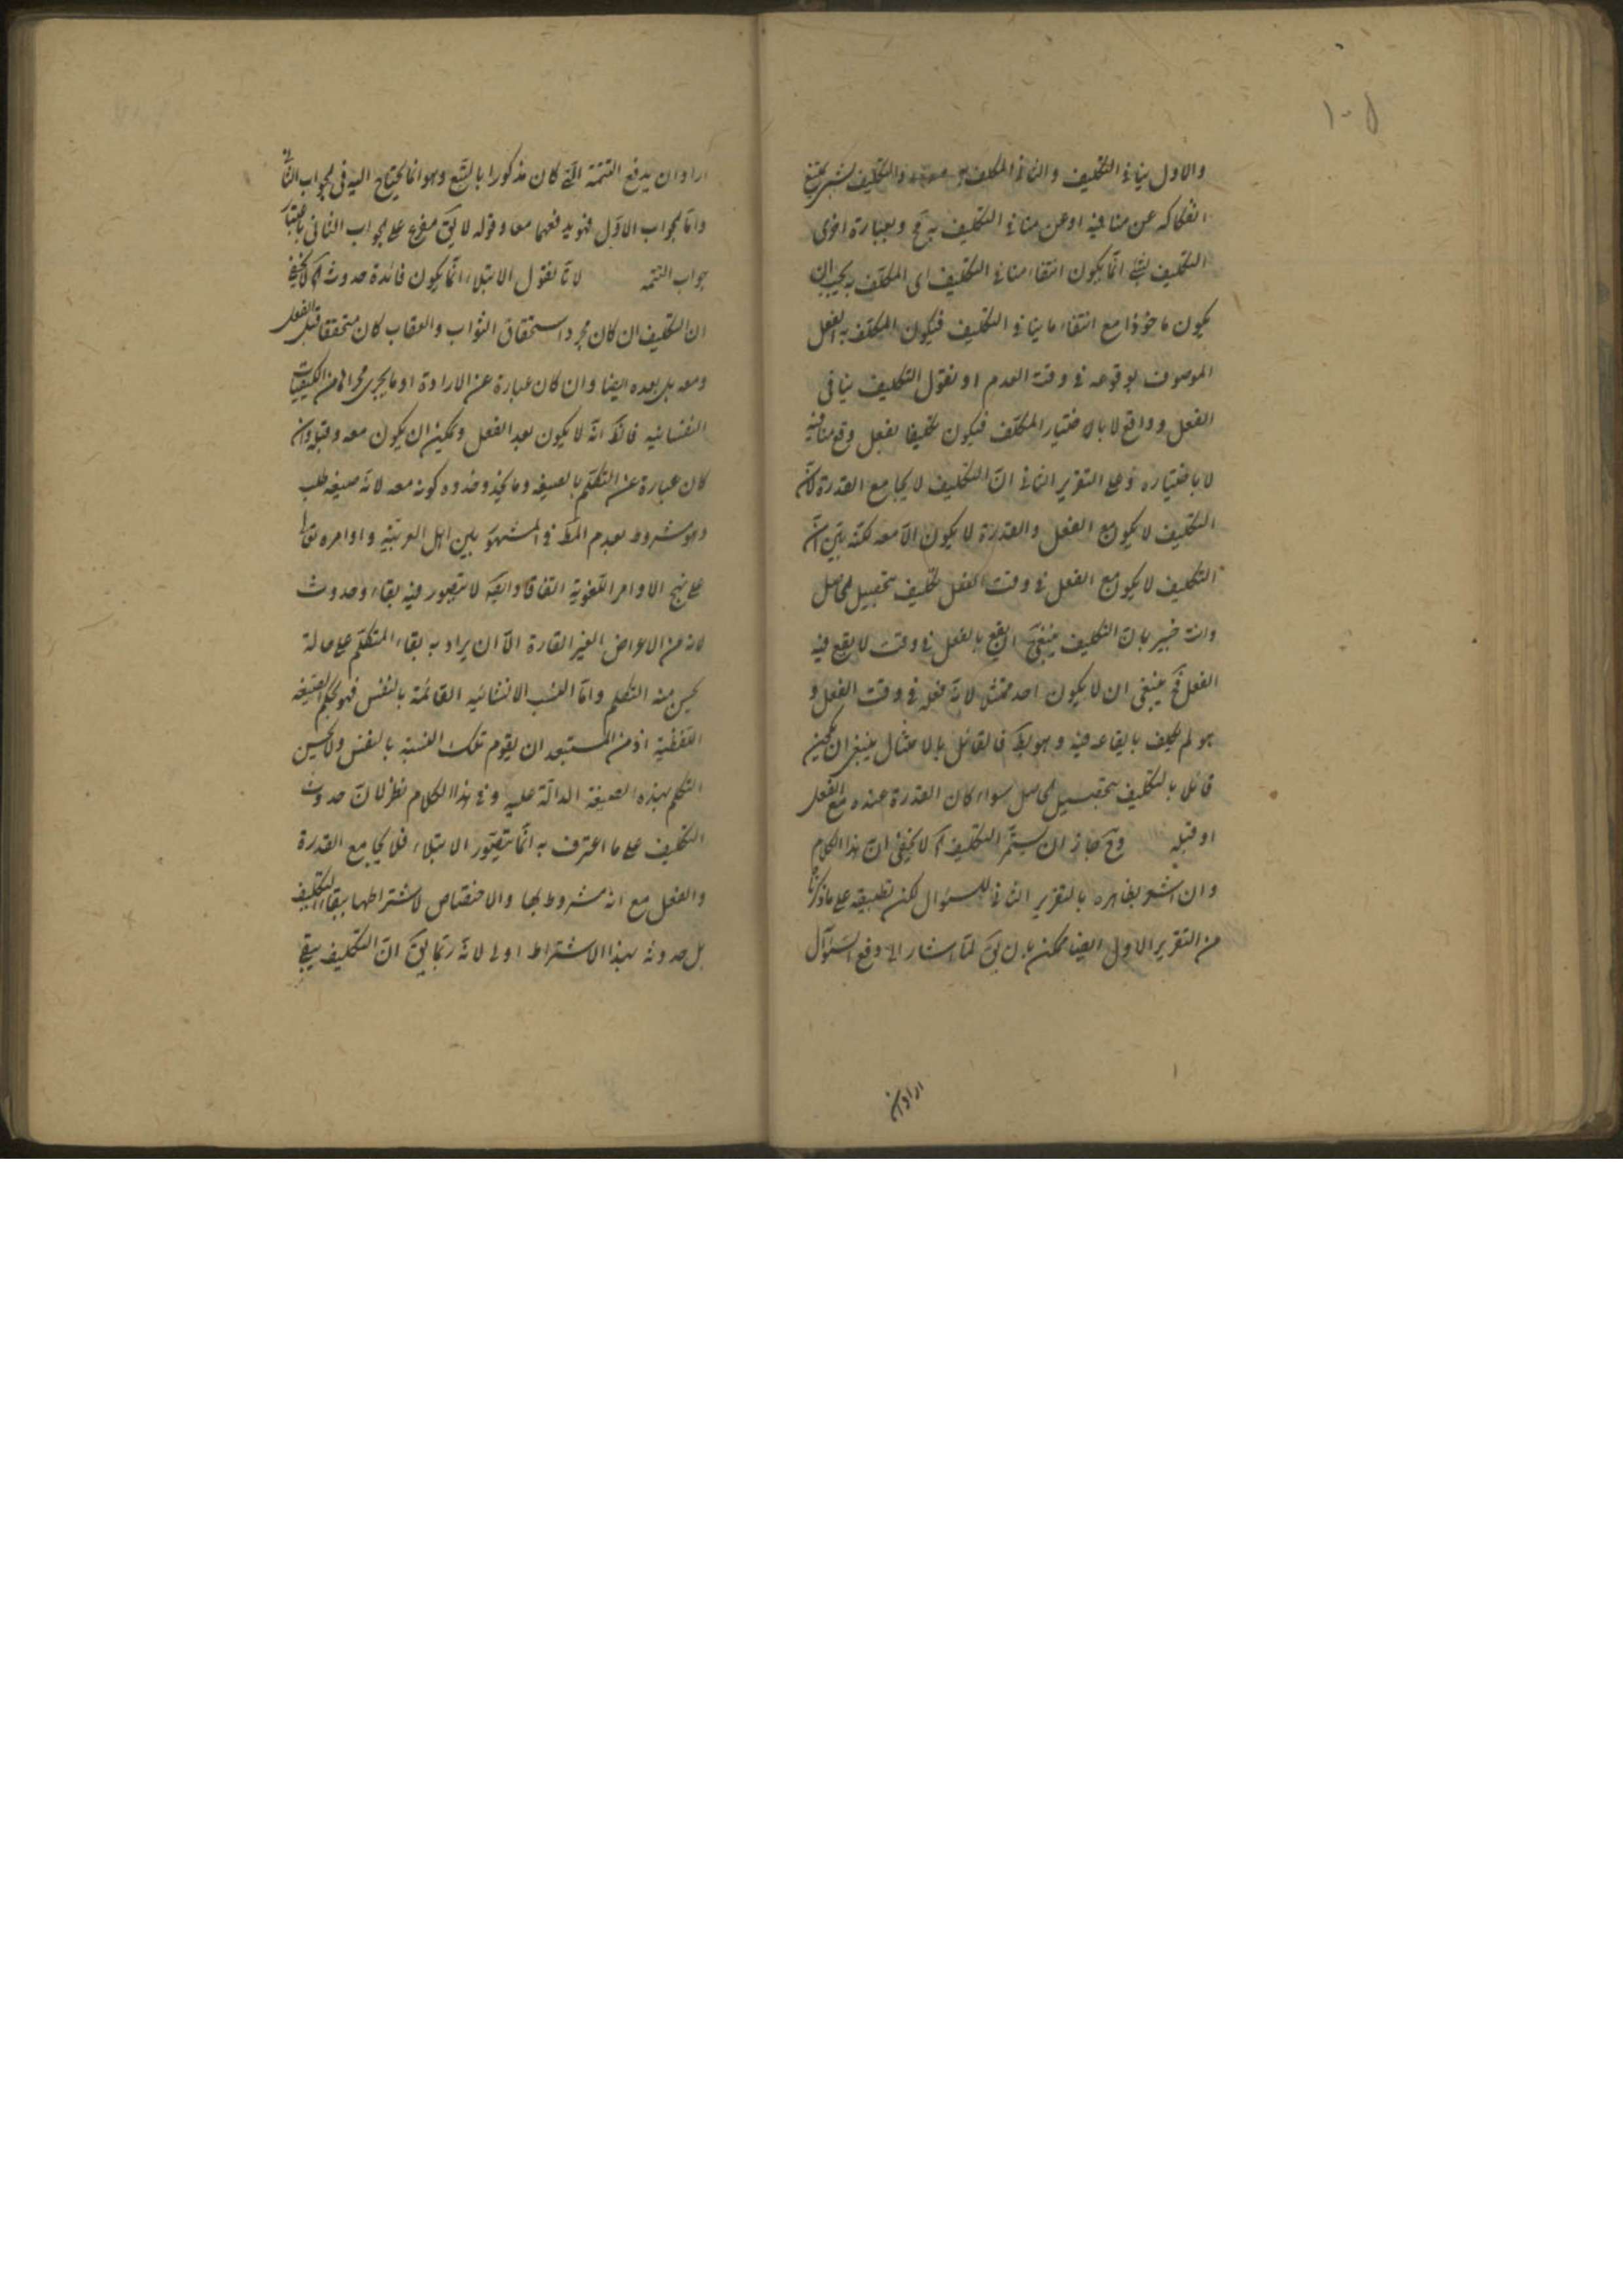 ١٠٥
والاول ينافي التكليف والثاني المكلف به والتكليف بشيء يمتنع
انفكاكه عن منافيه او عن منافي التكليف به مح وبعبارة اخرى
التكليف بشيء انما يكون انتفاء منافي التكليف اى المكلف به يجب ان
يكون ماخوذا مع انتفاء ما ينافي التكليف فيكون المكلف به الفعل
الموصوف بوقوعه في وقت العدم او نقول التكليف ينافى
الفعل وواقع لا بالاختيار المكلف فيكون تكليفا بفعل وقع منافيه
لا باختياره وعلى التقرير الثاني ان التكليف لا يجامع القدرة لان
التكليف لا يكون مع الفعل والقدرة لا يكون الا معه لكنه بين ان
التكليف لا يكون مع الفعل في وقت الفعل تكليف بتحصيل الحاصل
وانت خبير بان التكليف ينبغى ان يقع بالفعل في وقت لا يقع فيه
الفعل فح ينبغى ان لا يكون احد ممتثلا لانه فعله في وقت الفعل و
هو لم يكلف بايقاعه فيه وهو بط فالقائل بالامتثال ينبغي ان يكون
قائل بالتكليف بتحصيل الحاصل سواء كان القدرة عنده مع الفعل
او قبله وح جاز ان يستمر التكليف اه لا يخفى ان هذا الكلام
وان اشعر بظاهره بالتقرير الثاني للسؤال لكن تطبيقه على ما ذكرنا
من التقرير الاول ايضا ممكن بان يق لما اشار الى دفع السؤال
اراد ان
اراد ان يدفع التتمة التي كان مذكورا بالتبع وهو انما يحتاج اليه فى الجواب الثانى
واما الجواب الاول فهو يدفعهما معا وقوله لا يق متفرع على الجواب الثانى باعتبار
جواب التتمه لانا نقول الابتلاء انما يكون فائدة حدوثه اه لا يخفى
ان التكليف ان كان مجرد استحقاق الثواب والعقاب كان متحققا قبل الفعل
ومعه بل بعده ايضا وان كان عبارة عن الارادة او ما يجرى مجراها من الكيفيات
النفسانيه فالظ انه لا يكون بعد الفعل ويمكن ان يكون معه وقبله وان
كان عبارة عن التكلم بالصيغه وما يحذو حذوه كونه معه لانه صيغه طلب
وهو مشروط بعدم المط في المشهور بين اهل العربية واوامره تعالى
على نهج الاوامر اللغوية اتفاقا وايضا لا يتصور فيه بقاء وحدوث
لانه من الاعراض الغير القارة الا ان يراد به بقاء المتكلم على حالة
يحسن منه التكلم واما النسب الانشائيه القائمة بالنفس فهو بحكم الصيغه
اللفظية اذ من المستبعد ان يقوم تلك النسبة بالنفس ولا يحسن
التكلم بهذه الصيغة الدالة عليه وفي هذا الكلام نظر لان حدوث
التكليف على ما اعترف به انما يتصور الابتلاء فلا يجامع القدرة
والفعل مع انه مشروط بها والاختصاص لاشتراطها ببقاء التكليف
بل حدوثه بهذا الاشتراط اولى لانه ربما يق ان التكليف يبقى